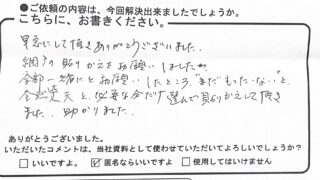 ●ご依頼の内容は、今回解決出来ましたでしょうか。
こちらに、お書きください。
早急にして頂きありがとうございました。
網戸の貼りかえをお願いしましたが、
全部一緒にとお願いしたところ、"まだもったいない"と、
必要な分だけ選んで貼りかえして頂き
ました。助かりました。
ありがとうございました。
いただいたコメントは、当社資料として使わせていただいてよろしいでしょうか？
□いいですよ。 ☑匿名ならいいですよ □使用してはいけません